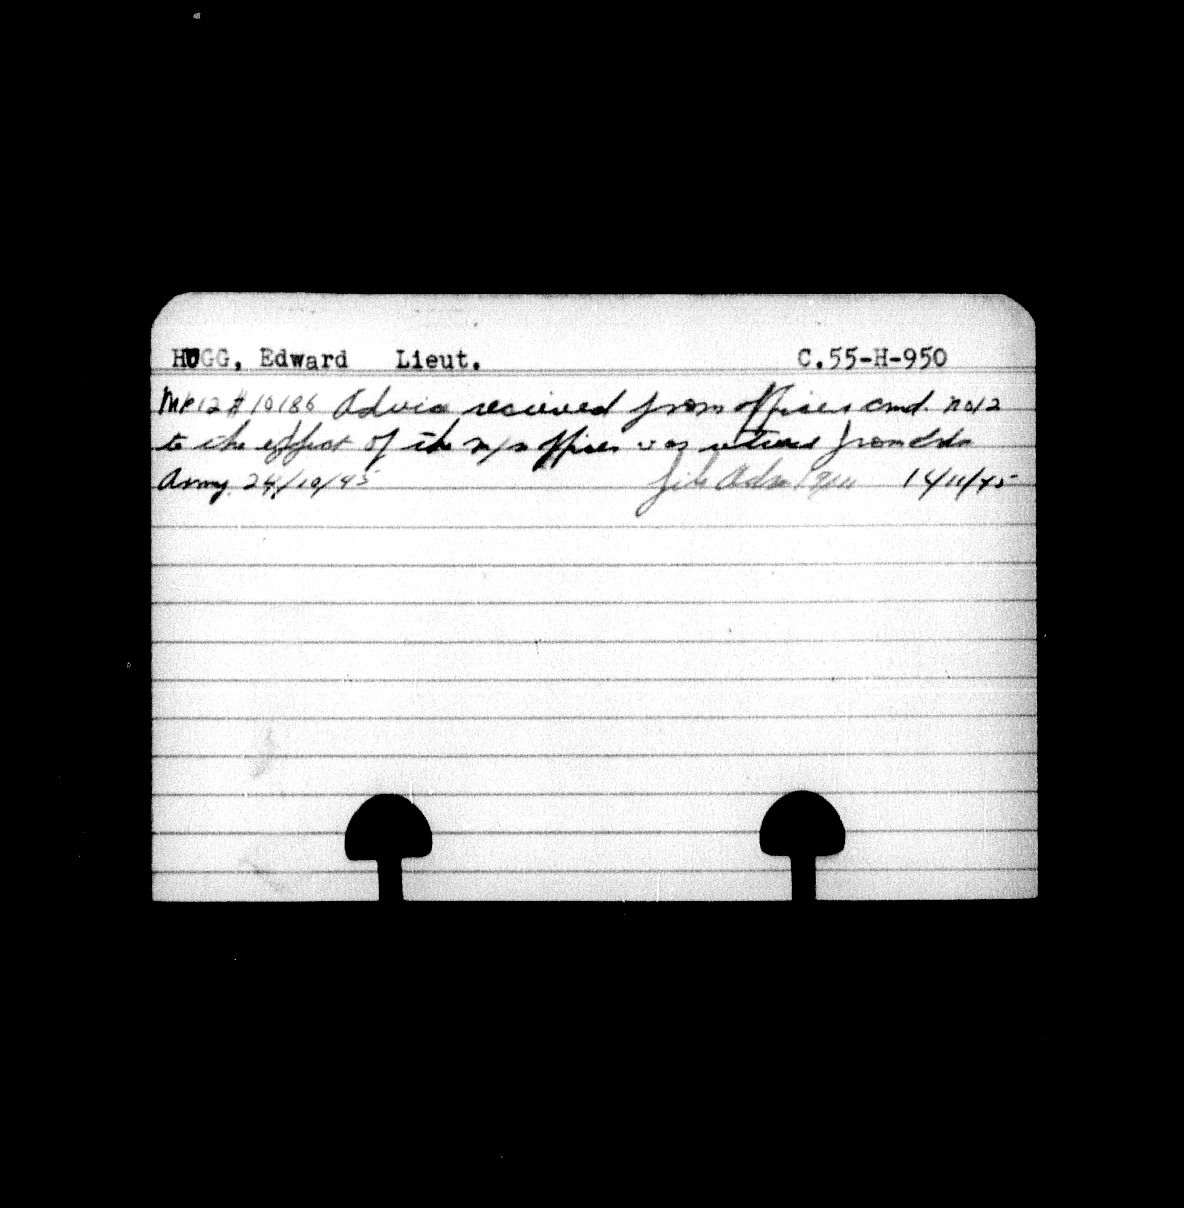 HUGG, Edward Lieut. C.55-H-950
MP12 # 10186 Advice recieved from officer cmd. no12
to the effect of the m/n officer was retired from
Army. 24/10/45 14/11/45